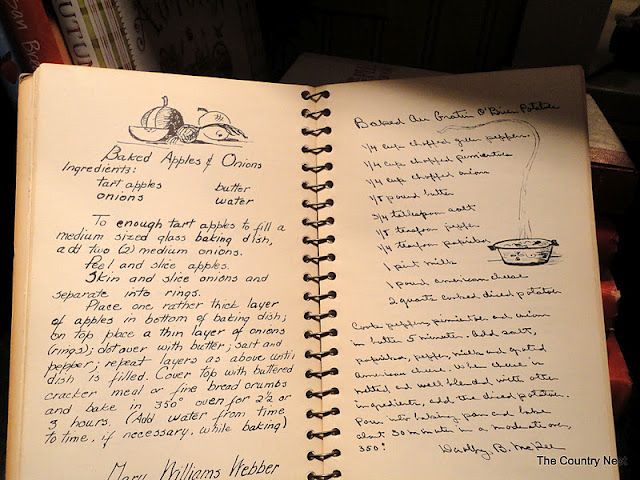 Baked Apples & Onions
Ingredients:
tart apples butter
onions water
To enough tart apples to fill a
medium sized glass baking dish,
add two (2) medium onions.
Peel and slice apples.
Skin and slice onions and
separate into rings.
Place one rather thick layer
of apples in bottom of baking dish;
on top place a thin layer of onions
(rings); dot over with butter; salt and
pepper; repeat layers as above until
dish is filled. Cover top with buttered
cracker meal or fine bread crumbs
and bake in 350° oven for 2½ or
3 hours. (Add water from time
to time, if necessary, while baking)
Mary Williams Webber
Baked Au Gratin O'Brien Potatoes
1/4 cup chopped green peppers
1/4 cup chopped pimientos
1/4 cup chopped onions
1/8 pound butter
3/4 tablespoon salt
1/8 teaspoon pepper
1/4 teaspoon paprika
1 pint milk
1 pound american cheese
2 quarts cooked diced potatoes
Cook peppers, pimientos and onions
in butter 5 minutes. Add salt,
paprika, pepper, milk and grated
American cheese. When cheese is
melted and well blended with other
ingredients, add the diced potatoes.
Pour into baking pan and bake
about 30 minutes in a moderate oven,
350°.
B.
The Country Nest